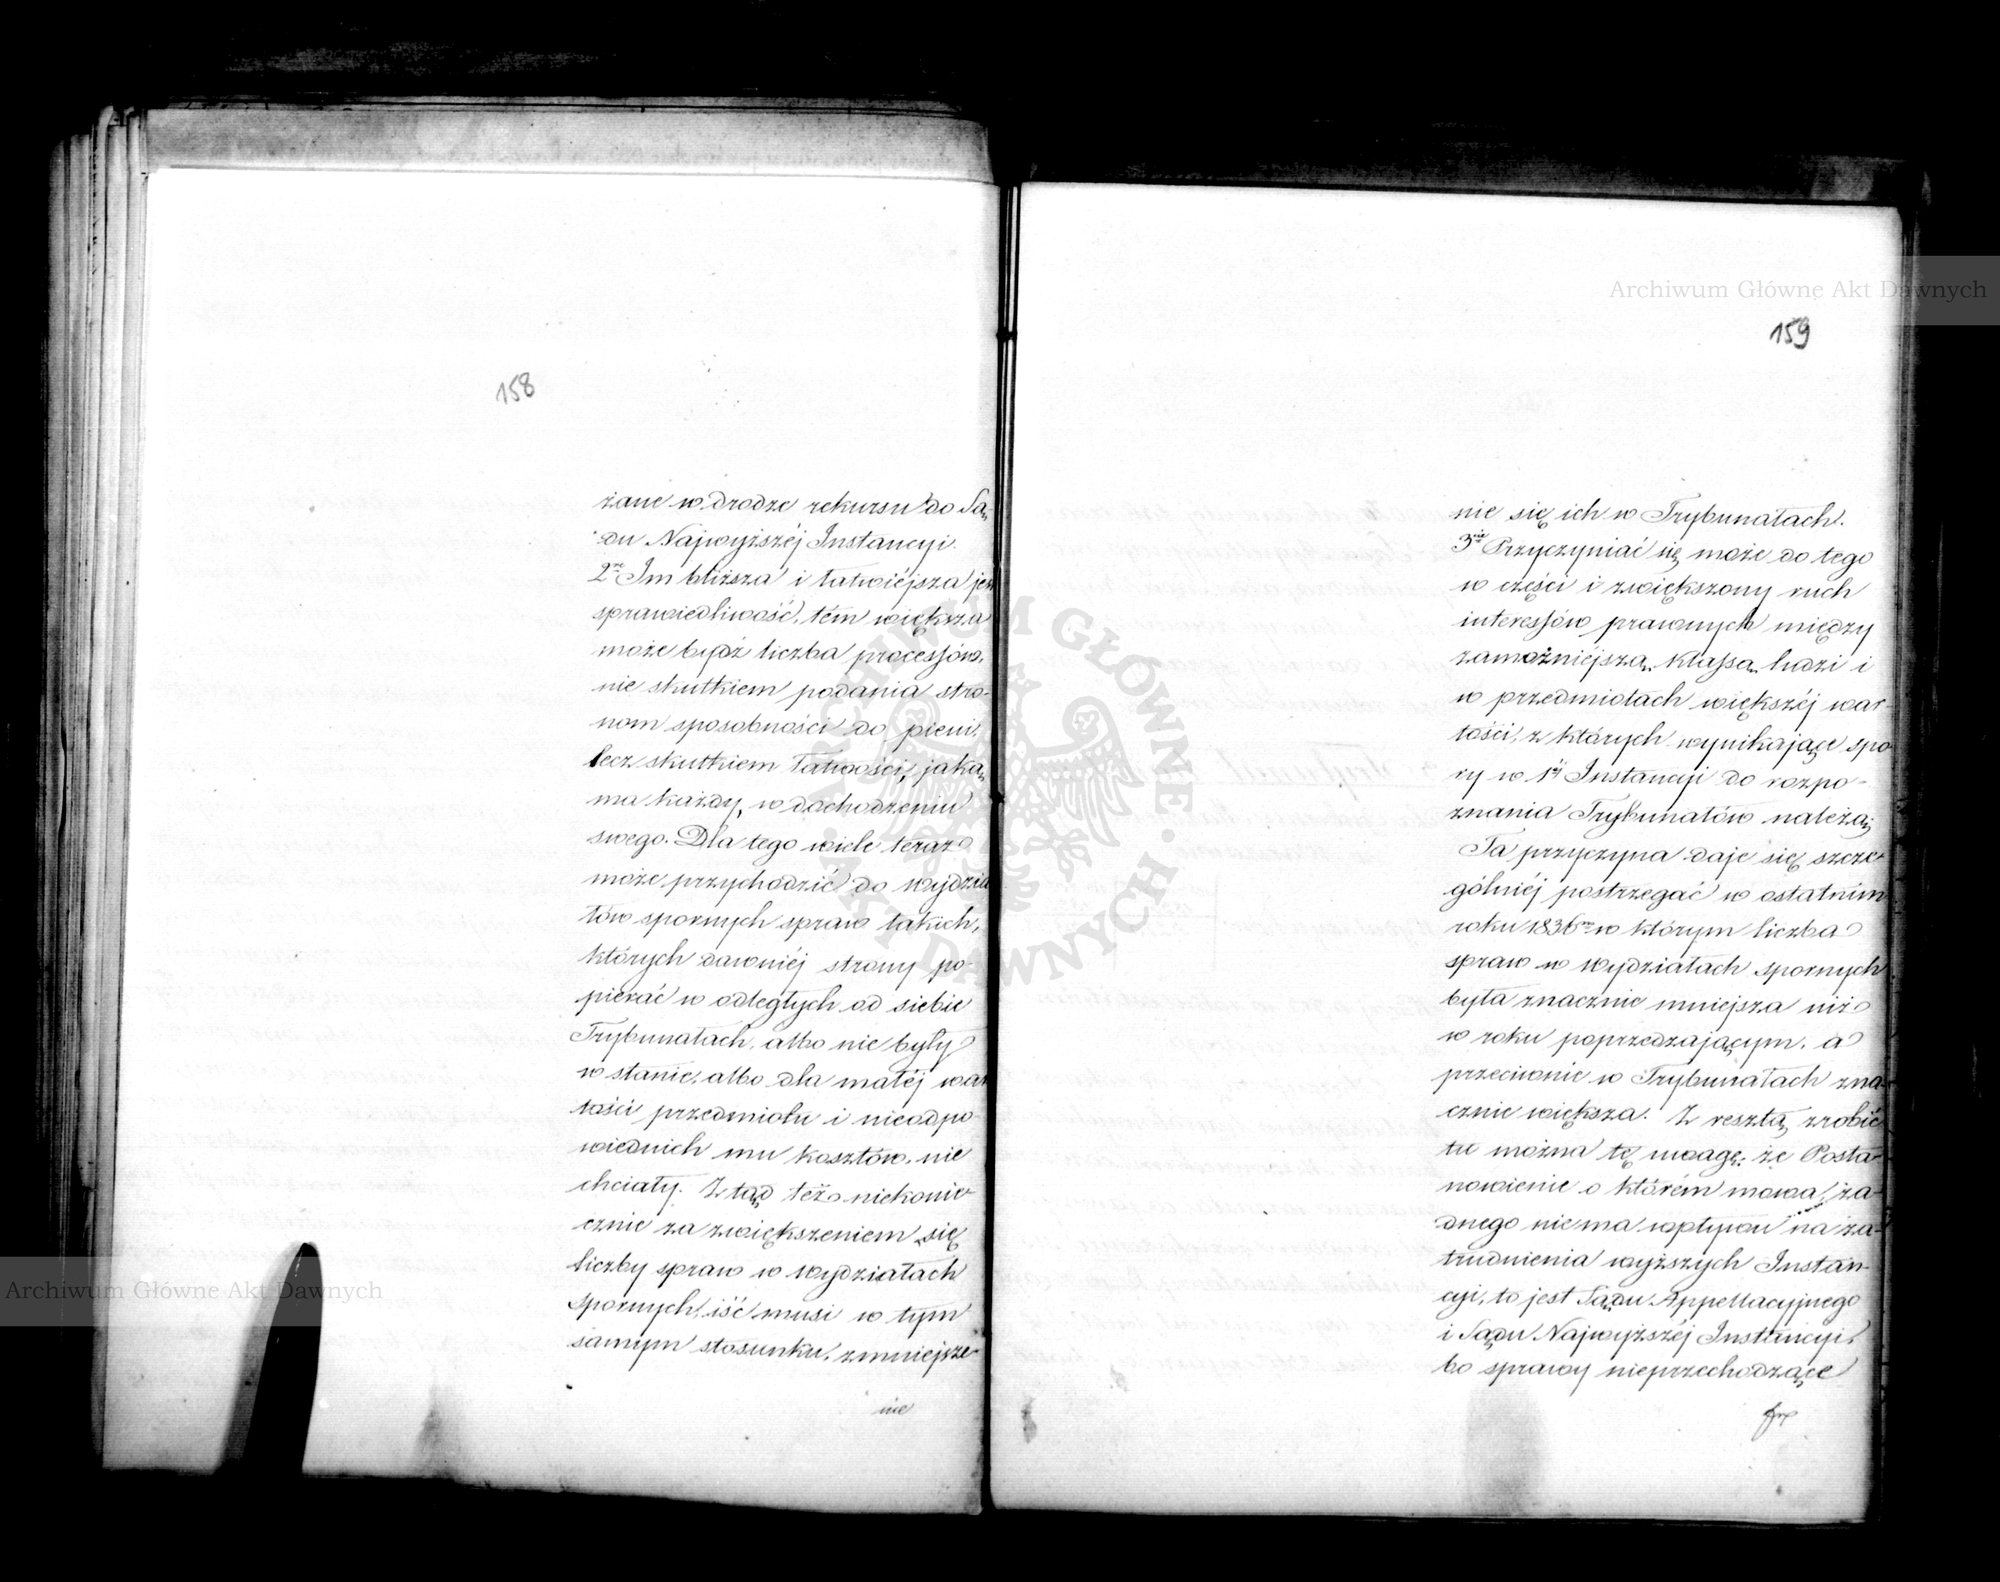 158
żane w drodze rekursu do Są
du Najwyższéj Instancyi.
2re Im bliższa i łatwiéjsza jest
sprawiedliwość, tém większa
może bydź liczba processów,
nie skutkiem podania stro-
nom sposobności do pieni,
lecz skutkiem łatwości, jaką
ma każdy, w dochodzeniu
swego. Dla tego wiele teraz
może przychodzić do wydzia
łów spornych spraw takich,
których dawniéj strony po-
pierać w odległych od siebie
Trybunałach, albo nie były
w stanie, albo dla małéj war
tości przedmiotu i nieodpo-
wiednich mu kosztów, nie
chciały. Z tąd też niekonie-
cznie za zwiększeniem się
liczby spraw w wydziałach
spornych, iść musi w tym
samym stosunku, zmniejsze-
nie
159
nie się ich w Trybunałach.
3cie Przyczyniać się może do tego
w części i zwiększony ruch
interessów prawnych między
zamożniejszą klassą ludzi i
w przedmiotach większéj war-
tości, z których wynikające spo
ry w 1éj Instancji do rozpo-
znania Trybunałów należą;
Ta przyczyna daje się szcze-
gólniéj postrzegać w ostatnim
roku 1836m w którym liczba
spraw w wydziałach spornych
była znacznie mniejsza niż
w roku poprzedzającym, a
przeciwnie w Trybunałach zna-
cznie większa. Z resztą zrobić
tu można tę uwagę: że Posta-
nowienie o którém mowa, ża-
dnego niema wpływu na za-
trudnienia wyższych Instan-
cyi, to jest Sądu Appellacyjnego
i Sądu Najwyższéj Instancyi,
bo sprawy nieprzechodzące
Archiwum Główne Akt Dawnych
Archiwum Główne Akt Dawnych
ARCHIWUM GŁÓWNE AKT DAWNYCH